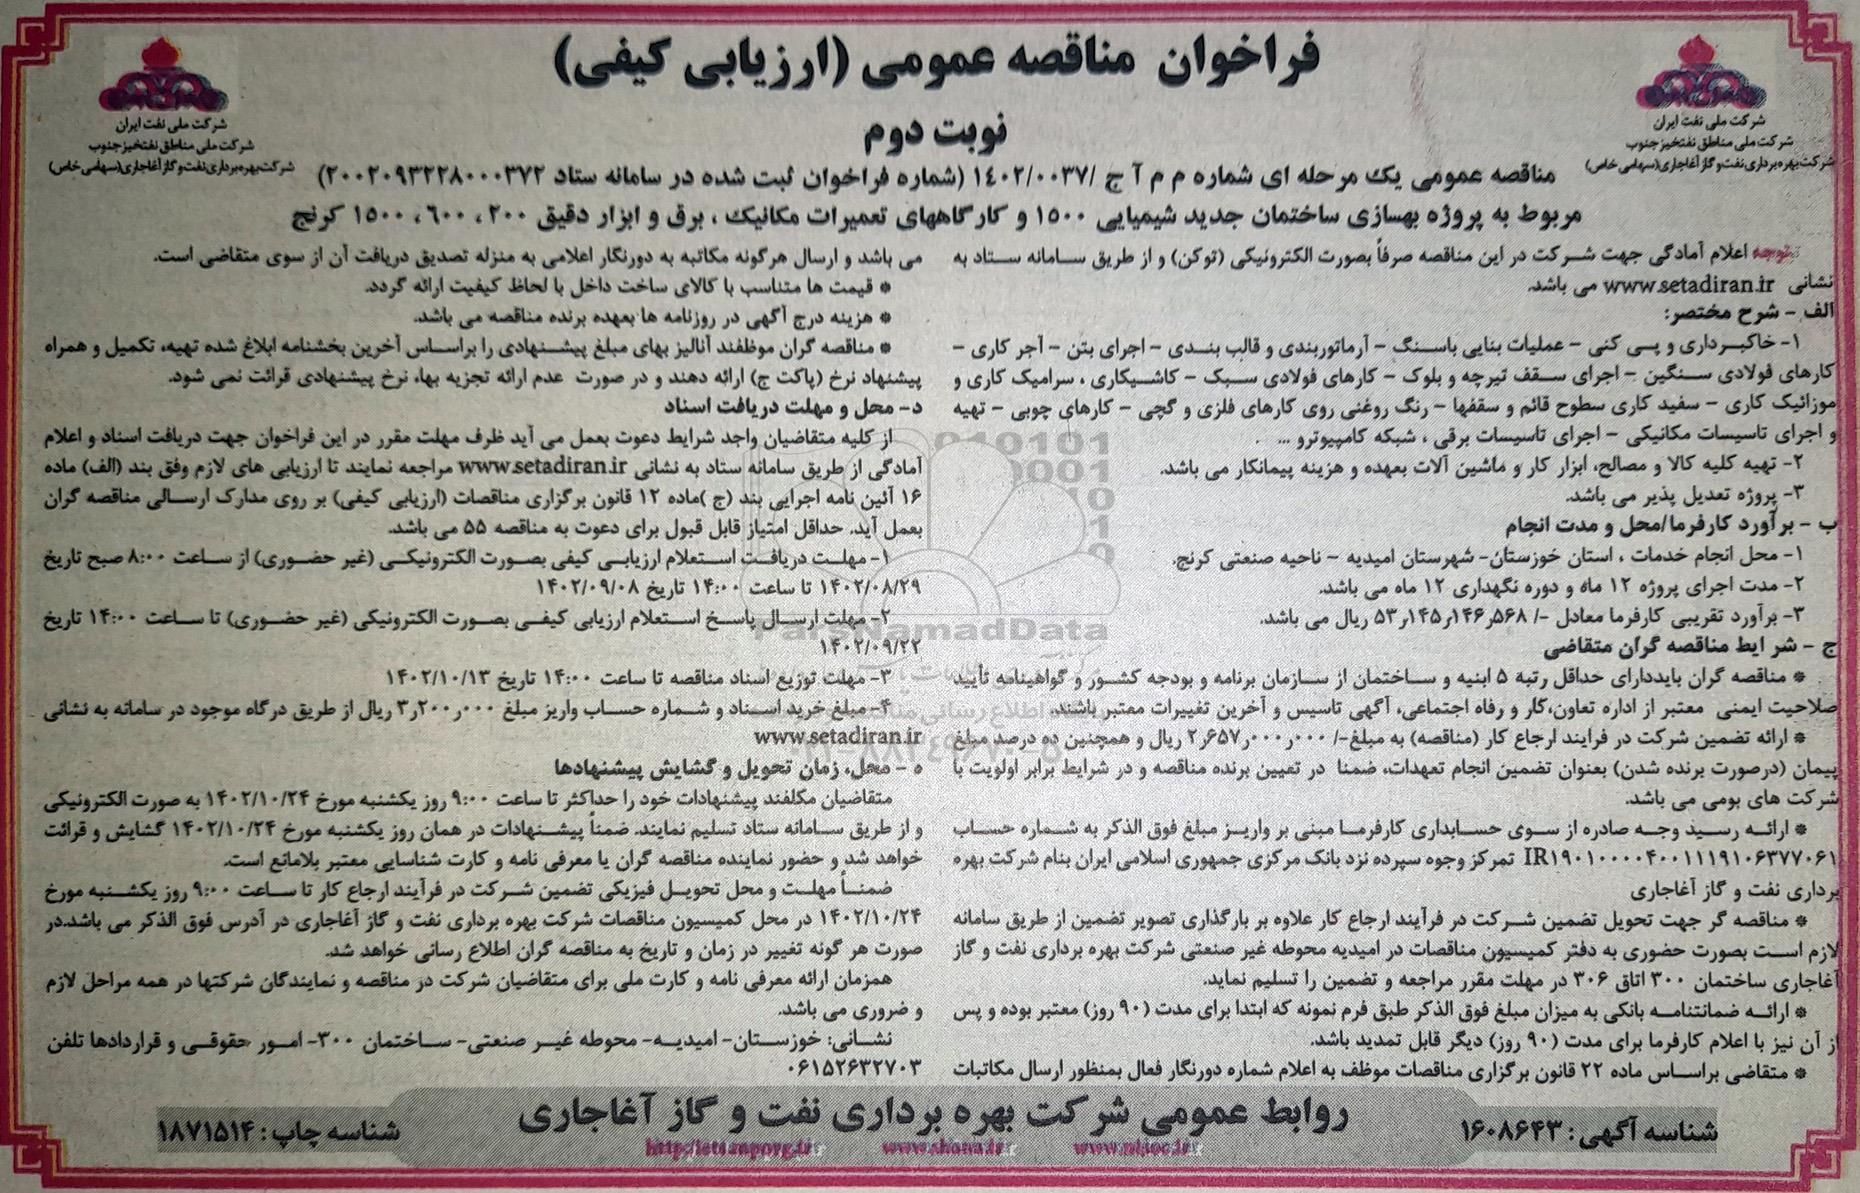 فراخوان مناقصه عمومی (ارزیابی کیفی)
نوبت دوم
شرکت ملی نفت ایران
شرکت ملی مناطق نفتخیز جنوب
شرکت بهره برداری نفت و گاز آغاجاری (سهامی خاص)
شرکت ملی نفت ایران
شرکت ملی مناطق نفتخیز جنوب
شرکت بهره برداری نفت و گاز آغاجاری (سهامی خاص)
مناقصه عمومی یک مرحله ای شماره م م آ ج /۱۴۰۲/۰۰۳۷ (شماره فراخوان ثبت شده در سامانه ستاد ۲۰۰۲۰۹۳۲۲۸۰۰۰۳۷۲)
مربوط به پروژه بهسازی ساختمان جدید شیمیایی ۱۵۰۰ و کارگاههای تعمیرات مکانیک ، برق و ابزار دقیق ۲۰۰ ، ۶۰۰ ، ۱۵۰۰ کرنج
توجه اعلام آمادگی جهت شرکت در این مناقصه صرفاً بصورت الکترونیکی (توکن) و از طریق سامانه ستاد به
نشانی www.setadiran.ir می باشد.
الف - شرح مختصر:
۱- خاکبرداری و پی کنی - عملیات بنایی باسنگ - آرماتوربندی و قالب بندی - اجرای بتن - آجر کاری -
کارهای فولادی سنگین - اجرای سقف تیرچه و بلوک - کارهای فولادی سبک - کاشیکاری ، سرامیک کاری و
موزائیک کاری - سفید کاری سطوح قائم و سقفها - رنگ روغنی روی کارهای فلزی و گچی - کارهای چوبی - تهیه
و اجرای تاسیسات مکانیکی - اجرای تاسیسات برقی ، شبکه کامپیوترو ... .
۲- تهیه کلیه کالا و مصالح، ابزار کار و ماشین آلات بعهده و هزینه پیمانکار می باشد.
۳- پروژه تعدیل پذیر می باشد.
ب - برآورد کارفرما/محل و مدت انجام
۱- محل انجام خدمات ، استان خوزستان- شهرستان امیدیه - ناحیه صنعتی کرنج.
۲- مدت اجرای پروژه ۱۲ ماه و دوره نگهداری ۱۲ ماه می باشد.
۳- برآورد تقریبی کارفرما معادل -/ ۵۳٫۱۴۵٫۱۴۶٫۵۶۸ ریال می باشد.
ج - شرایط مناقصه گران متقاضی
* مناقصه گران بایددارای حداقل رتبه ۵ ابنیه و ساختمان از سازمان برنامه و بودجه کشور و گواهینامه تأیید
صلاحیت ایمنی معتبر از اداره تعاون،کار و رفاه اجتماعی، آگهی تاسیس و آخرین تغییرات معتبر باشند.
* ارائه تضمین شرکت در فرایند ارجاع کار (مناقصه) به مبلغ-/ ۲٫۶۵۷٫۰۰۰٫۰۰۰ ریال و همچنین ده درصد مبلغ
پیمان (درصورت برنده شدن) بعنوان تضمین انجام تعهدات، ضمنا در تعیین برنده مناقصه و در شرایط برابر اولویت با
شرکت های بومی می باشد.
* ارائه رسید وجه صادره از سوی حسابداری کارفرما مبنی بر واریز مبلغ فوق الذکر به شماره حساب
IR۱۹۰۱۰۰۰۰۴۰۰۱۱۱۹۱۰۶۳۷۷۰۶۱ تمرکز وجوه سپرده نزد بانک مرکزی جمهوری اسلامی ایران بنام شرکت بهره
برداری نفت و گاز آغاجاری
* مناقصه گر جهت تحویل تضمین شرکت در فرآیند ارجاع کار علاوه بر بارگذاری تصویر تضمین از طریق سامانه
لازم است بصورت حضوری به دفتر کمیسیون مناقصات در امیدیه محوطه غیر صنعتی شرکت بهره برداری نفت و گاز
آغاجاری ساختمان ۳۰۰ اتاق ۳۰۶ در مهلت مقرر مراجعه و تضمین را تسلیم نماید.
* ارائه ضمانتنامه بانکی به میزان مبلغ فوق الذکر طبق فرم نمونه که ابتدا برای مدت (۹۰ روز) معتبر بوده و پس
از آن نیز با اعلام کارفرما برای مدت (۹۰ روز) دیگر قابل تمدید باشد.
* متقاضی براساس ماده ۲۲ قانون برگزاری مناقصات موظف به اعلام شماره دورنگار فعال بمنظور ارسال مکاتبات
می باشد و ارسال هرگونه مکاتبه به دورنگار اعلامی به منزله تصدیق دریافت آن از سوی متقاضی است.
* قیمت ها متناسب با کالای ساخت داخل با لحاظ کیفیت ارائه گردد.
* هزینه درج آگهی در روزنامه ها بعهده برنده مناقصه می باشد.
* مناقصه گران موظفند آنالیز بهای مبلغ پیشنهادی را براساس آخرین بخشنامه ابلاغ شده تهیه، تکمیل و همراه
پیشنهاد نرخ (پاکت ج) ارائه دهند و در صورت عدم ارائه تجزیه بها، نرخ پیشنهادی قرائت نمی شود.
د- محل و مهلت دریافت اسناد
از کلیه متقاضیان واجد شرایط دعوت بعمل می آید ظرف مهلت مقرر در این فراخوان جهت دریافت اسناد و اعلام
آمادگی از طریق سامانه ستاد به نشانی www.setadiran.ir مراجعه نمایند تا ارزیابی های لازم وفق بند (الف) ماده
۱۶ آئین نامه اجرایی بند (ج )ماده ۱۲ قانون برگزاری مناقصات (ارزیابی کیفی) بر روی مدارک ارسالی مناقصه گران
بعمل آید. حداقل امتیاز قابل قبول برای دعوت به مناقصه ۵۵ می باشد.
۱- مهلت دریافت استعلام ارزیابی کیفی بصورت الکترونیکی (غیر حضوری) از ساعت ۸:۰۰ صبح تاریخ
۱۴۰۲/۰۸/۲۹ تا ساعت ۱۴:۰۰ تاریخ ۱۴۰۲/۰۹/۰۸
۲- مهلت ارسال پاسخ استعلام ارزیابی کیفی بصورت الکترونیکی (غیر حضوری) تا ساعت ۱۴:۰۰ تاریخ
۱۴۰۲/۰۹/۲۲
۳- مهلت توزیع اسناد مناقصه تا ساعت ۱۴:۰۰ تاریخ ۱۴۰۲/۱۰/۱۳
۴- مبلغ خرید اسناد و شماره حساب واریز مبلغ ۳٫۲۰۰٫۰۰۰ ریال از طریق درگاه موجود در سامانه به نشانی
www.setadiran.ir
ه - محل، زمان تحویل و گشایش پیشنهادها
متقاضیان مکلفند پیشنهادات خود را حداکثر تا ساعت ۹:۰۰ روز یکشنبه مورخ ۱۴۰۲/۱۰/۲۴ به صورت الکترونیکی
و از طریق سامانه ستاد تسلیم نمایند. ضمناً پیشنهادات در همان روز یکشنبه مورخ ۱۴۰۲/۱۰/۲۴ گشایش و قرائت
خواهد شد و حضور نماینده مناقصه گران یا معرفی نامه و کارت شناسایی معتبر بلامانع است.
ضمناً مهلت و محل تحویل فیزیکی تضمین شرکت در فرآیند ارجاع کار تا ساعت ۹:۰۰ روز یکشنبه مورخ
۱۴۰۲/۱۰/۲۴ در محل کمیسیون مناقصات شرکت بهره برداری نفت و گاز آغاجاری در آدرس فوق الذکر می باشد.در
صورت هر گونه تغییر در زمان و تاریخ به مناقصه گران اطلاع رسانی خواهد شد.
همزمان ارائه معرفی نامه و کارت ملی برای متقاضیان شرکت در مناقصه و نمایندگان شرکتها در همه مراحل لازم
و ضروری می باشد.
نشانی: خوزستان- امیدیه- محوطه غیر صنعتی- ساختمان ۳۰۰- امور حقوقی و قراردادها تلفن
۰۶۱۵۲۶۳۲۷۰۳
ParsNamadData
روابط عمومی شرکت بهره برداری نفت و گاز آغاجاری
شناسه آگهی : ۱۶۰۸۶۴۳
شناسه چاپ : ۱۸۷۱۵۱۴
www.shana.ir